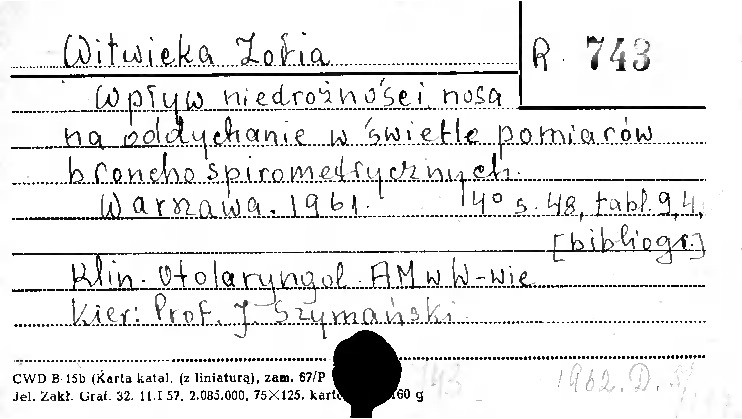 Witwicka Zofia R. 743
Wpływ niedrożności nosa
na oddychanie w świetle pomiarów
bronchospirometrycznych.
Warszawa. 1961. 4° s. 48, tabl. 9, 4,
[bibliogr.]
Klin. Otolaryngol. AM w W-wie
Kier: Prof. J. Szymański
CWD B-15b (Karta katal. (z liniaturą), zam. 67/P
Jel. Zakł. Graf. 32. 11.I 57. 2.085.000, 75×125, 160 g
1962. D.